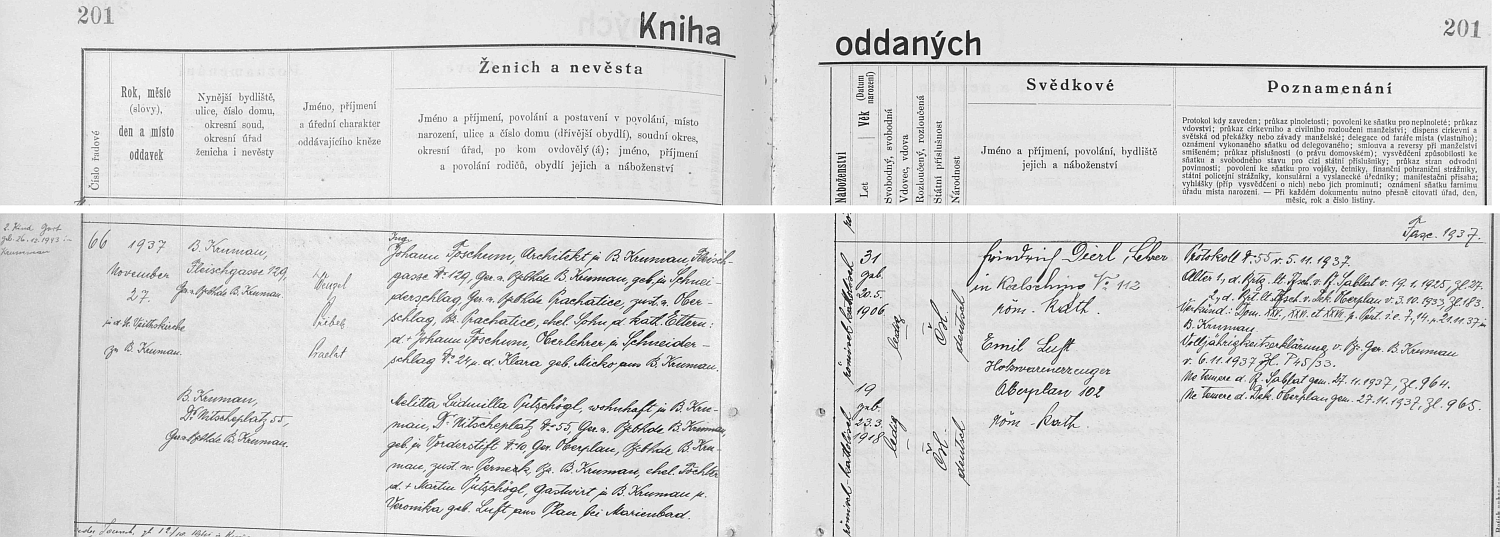 201
Kniha
oddaných
201
Číslo řadové
Rok, měsíc
(slovy),
den a místo
oddavek
Nynější bydliště,
ulice, číslo domu,
okresní soud,
okresní úřad
ženicha i nevěsty
Jméno, příjmení
a úřední charakter
oddávajícího kněze
Ženich a nevěsta
Jméno a příjmení, povolání a postavení v povolání, místo
narození, ulice a číslo domu (dřívější obydlí), soudní okres,
okresní úřad, po kom ovdovělý (á); jméno, příjmení
a povolání rodičů, obydlí jejich a náboženství
Náboženství
Let Věk (Datum narození)
Svobodný, svobodná
Vdovec, vdova
Rozloučený, rozloučená
Státní příslušnost
Národnost
Svědkové
Jméno a příjmení, povolání, bydliště
jejich a náboženství
Poznamenání
Protokol kdy zaveden; průkaz zletilosti; povolení ke sňatku pro nezletilé; průkaz
vdovství; průkaz církevního a civilního rozloučení manželství; dispens církevní a
světská od překážky nebo závady manželské; delegace od faráře místa (vlastního);
oznámení vykonaného sňatku od delegovaného; smlouva a reversy při manželství
smíšeném; průkaz příslušnosti (o právu domovském); vysvědčení způsobilosti ke
sňatku a svobodného stavu pro cizí státní příslušníky; průkaz stran odvodní
povinnosti; povolení ke sňatku pro vojáky, četníky, finanční pohraniční strážníky,
státní policejní strážníky, konsulární a vyslanecké úředníky; manifestační přísaha;
vyhlášky (příp vysvědčení o nich) nebo jich prominutí; oznámení sňatku farnímu
úřadu místa narození. — Při každém dokumentu nutno přesně citovati úřad, den,
měsíc, rok a číslo listiny.
2. Kind Gert
geb. 26.12.1943 in
Krummau
66
1937
November
27.
in d. St. Veitskirche
zu B. Krumau.
B. Krumau,
Fleischgasse 129,
Ger. u. Bzbhde B. Krumau.
B. Krumau,
Dr. Nitscheplatz 55,
Ger. u. Bzbhde B. Krumau.
Wenzel
Přibek
Praelat
Ing.
Johann Foschum, Architekt in B. Krumau, Fleisch-
gasse No 129, Ger. u. Bzbhde B. Krumau, geb. in Schnei-
derschlag Ger. u. Bzbhde Prachatice, zust. n. Ober-
schlag, Bz. Prachatice, ehel. Sohn d. kath. Eltern:
d. + Johann Foschum, Oberlehrer in Schneider-
schlag No 24 u. d. Klara geb. Micko aus B. Krumau.
Melitta Ludmilla Pützschögl, wohnhaft in B. Kru-
mau, Dr. Nitscheplatz No 55, Ger. u. Bzbhde B. Krumau,
geb. in Vorderstift No 10, Ger. Oberplan, Bzbhde B. Kru-
mau, zust. n. Pernek, Bz. B. Krumau, ehel. Tochter
d. + Martin Pützschögl, Gastwirt in B. Krumau u.
Veronika geb. Luft aus Plan bei Marienbad.
römisch-katholisch
31
geb.
20.5.
1906
ledig
Čsl.
deutsch
römisch-katholisch
19
geb.
23.3.
1918
ledig
Čsl.
deutsch
Friedrich Dierl, Lehrer
in Kalsching No 112
röm. kath.
Emil Luft
Holzwarenerzeuger
Oberplan 102
röm-kath.
Fasc. 1937.
Protokoll No 55 v. 5.11.1937.
Verkünd: Dom. XXV., XXVI. et XXVII. p. Pent. i. e. 7., 14. u. 21.11.37 in
B. Krumau.
Volljährigkeitserklärung v. Bz. Ger. B. Krumau
v. 6.11.1937 Zl. P 45/33.
Ne temere d. Pf. Sablat gem. 27.11.1937, Zl. 964.
Ne temere d. Dek. Oberplan gem. 27.11.1937, Zl. 965.